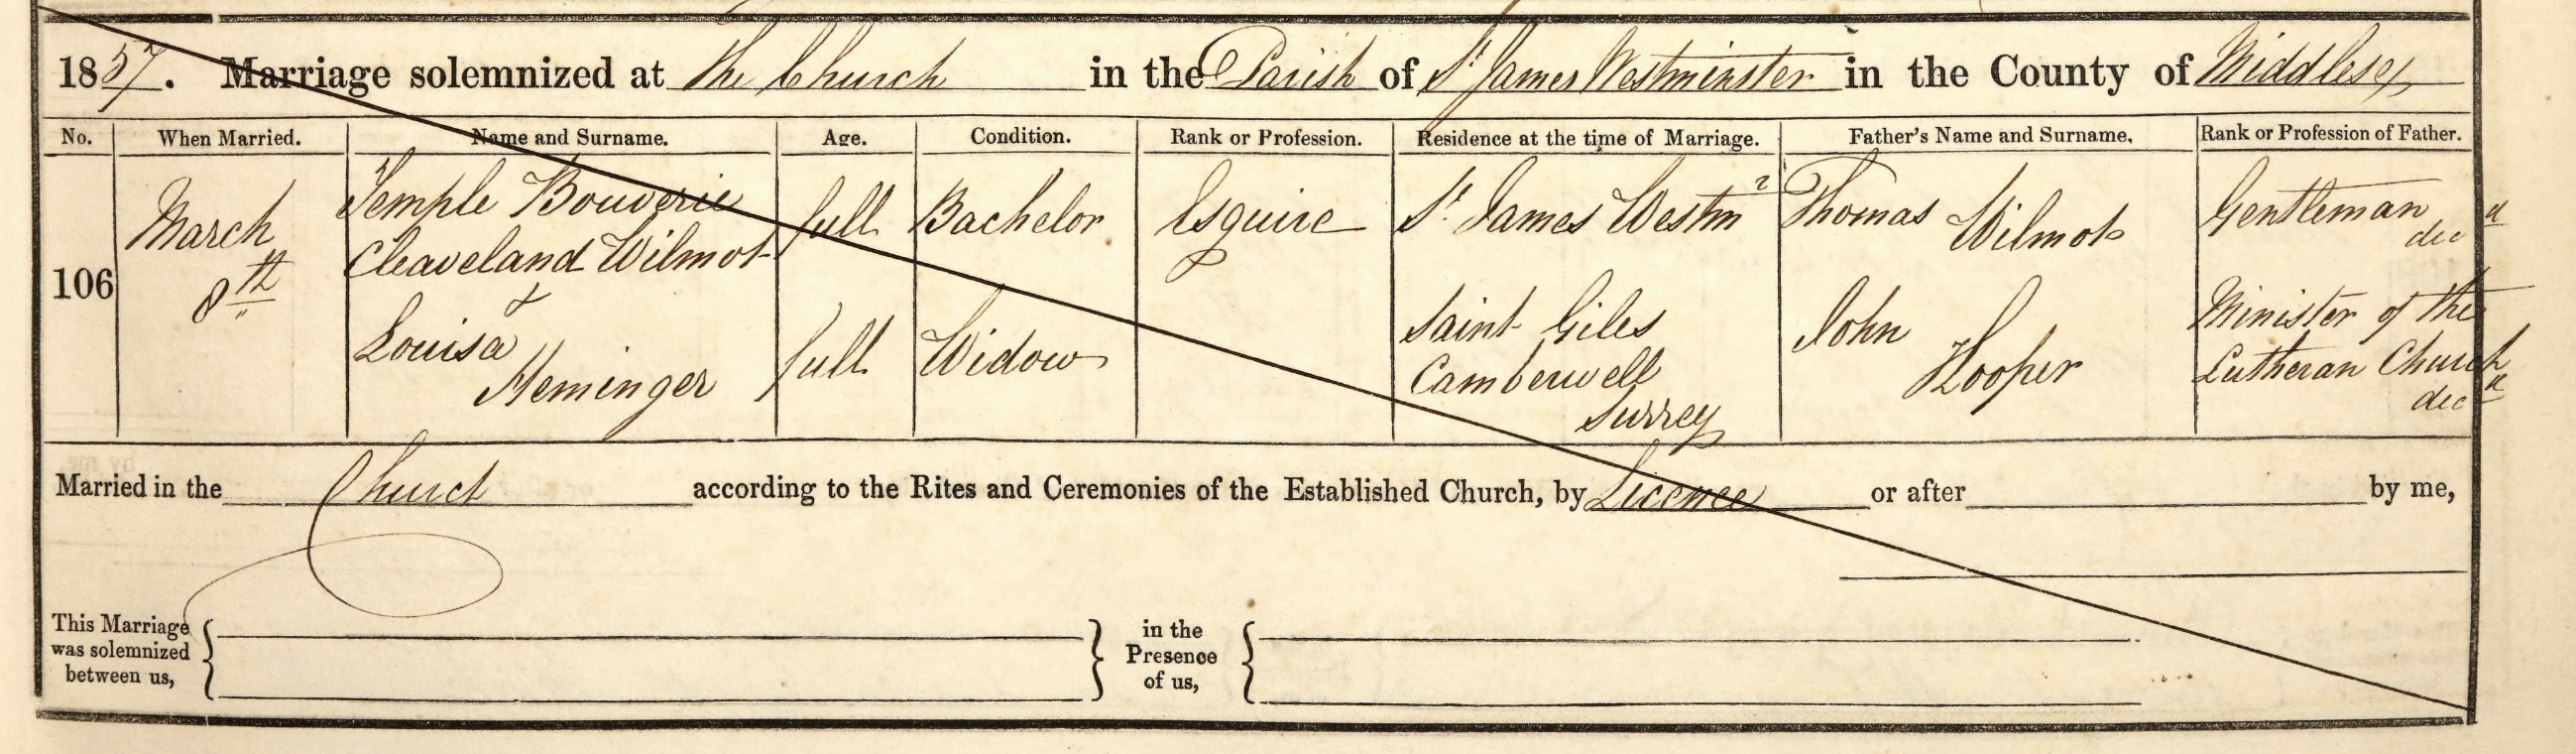 1857. Marriage solemnized at The Church in the Parish of St James Westminster in the County of Middlesex
No. When Married. Name and Surname. Age. Condition. Rank or Profession. Residence at the time of Marriage. Father's Name and Surname. Rank or Profession of Father.
106 March 8th Temple Bouverie Cleaveland Wilmot full Bachelor Esquire St James Westmr Thomas Wilmot Gentleman decd
&
Louisa Heminger full Widow Saint Giles Camberwell Surrey John Hooper Minister of the Lutheran Church decd
Married in the Church according to the Rites and Ceremonies of the Established Church, by Licence or after by me,
This Marriage was solemnized between us, in the Presence of us,